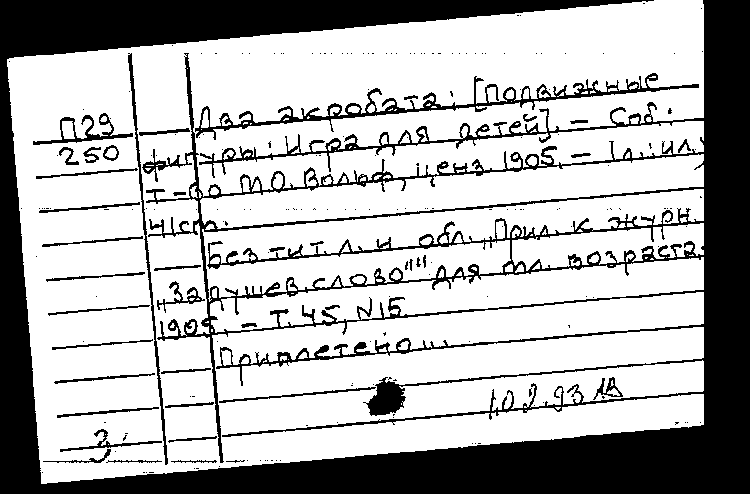 П29 Два акробата: [Подвижные
250 фигуры: Игра для детей]. – Спб:
Т-во М.О. Вольф, ценз. 1905. – 1 л.: ил.;
41 см.
Без тит. л. и обл. „Прил. к журн.
„Задушев. слово"" для мл. возраста.
1905. – Т. 45, N15
Приплетено...
1.02.93
3.